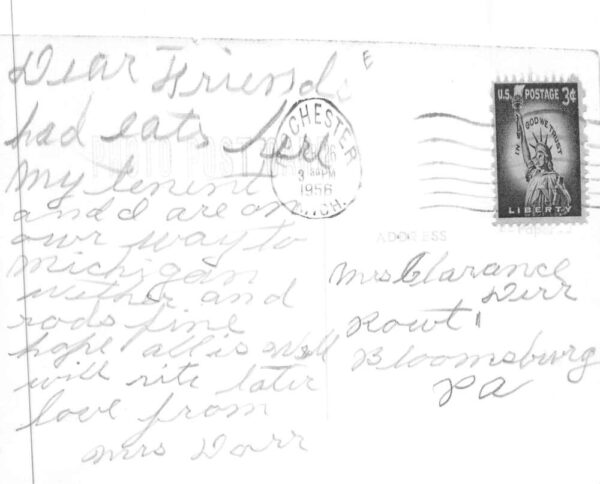 Dear Friends
had eats here
PHOTO POST CARD
My tenent
and I are on
owr way to
Michigan
wether and
rods fine
hope all is well
will rite later
love from
Mrs Dorr
CHESTER
3 PM
1956
MICH.
U.S. POSTAGE 3¢
IN GOD WE TRUST
LIBERTY
ADDRESS
Mrs Clarance
Derr
Rowt 1
Bloomsburg
Pa